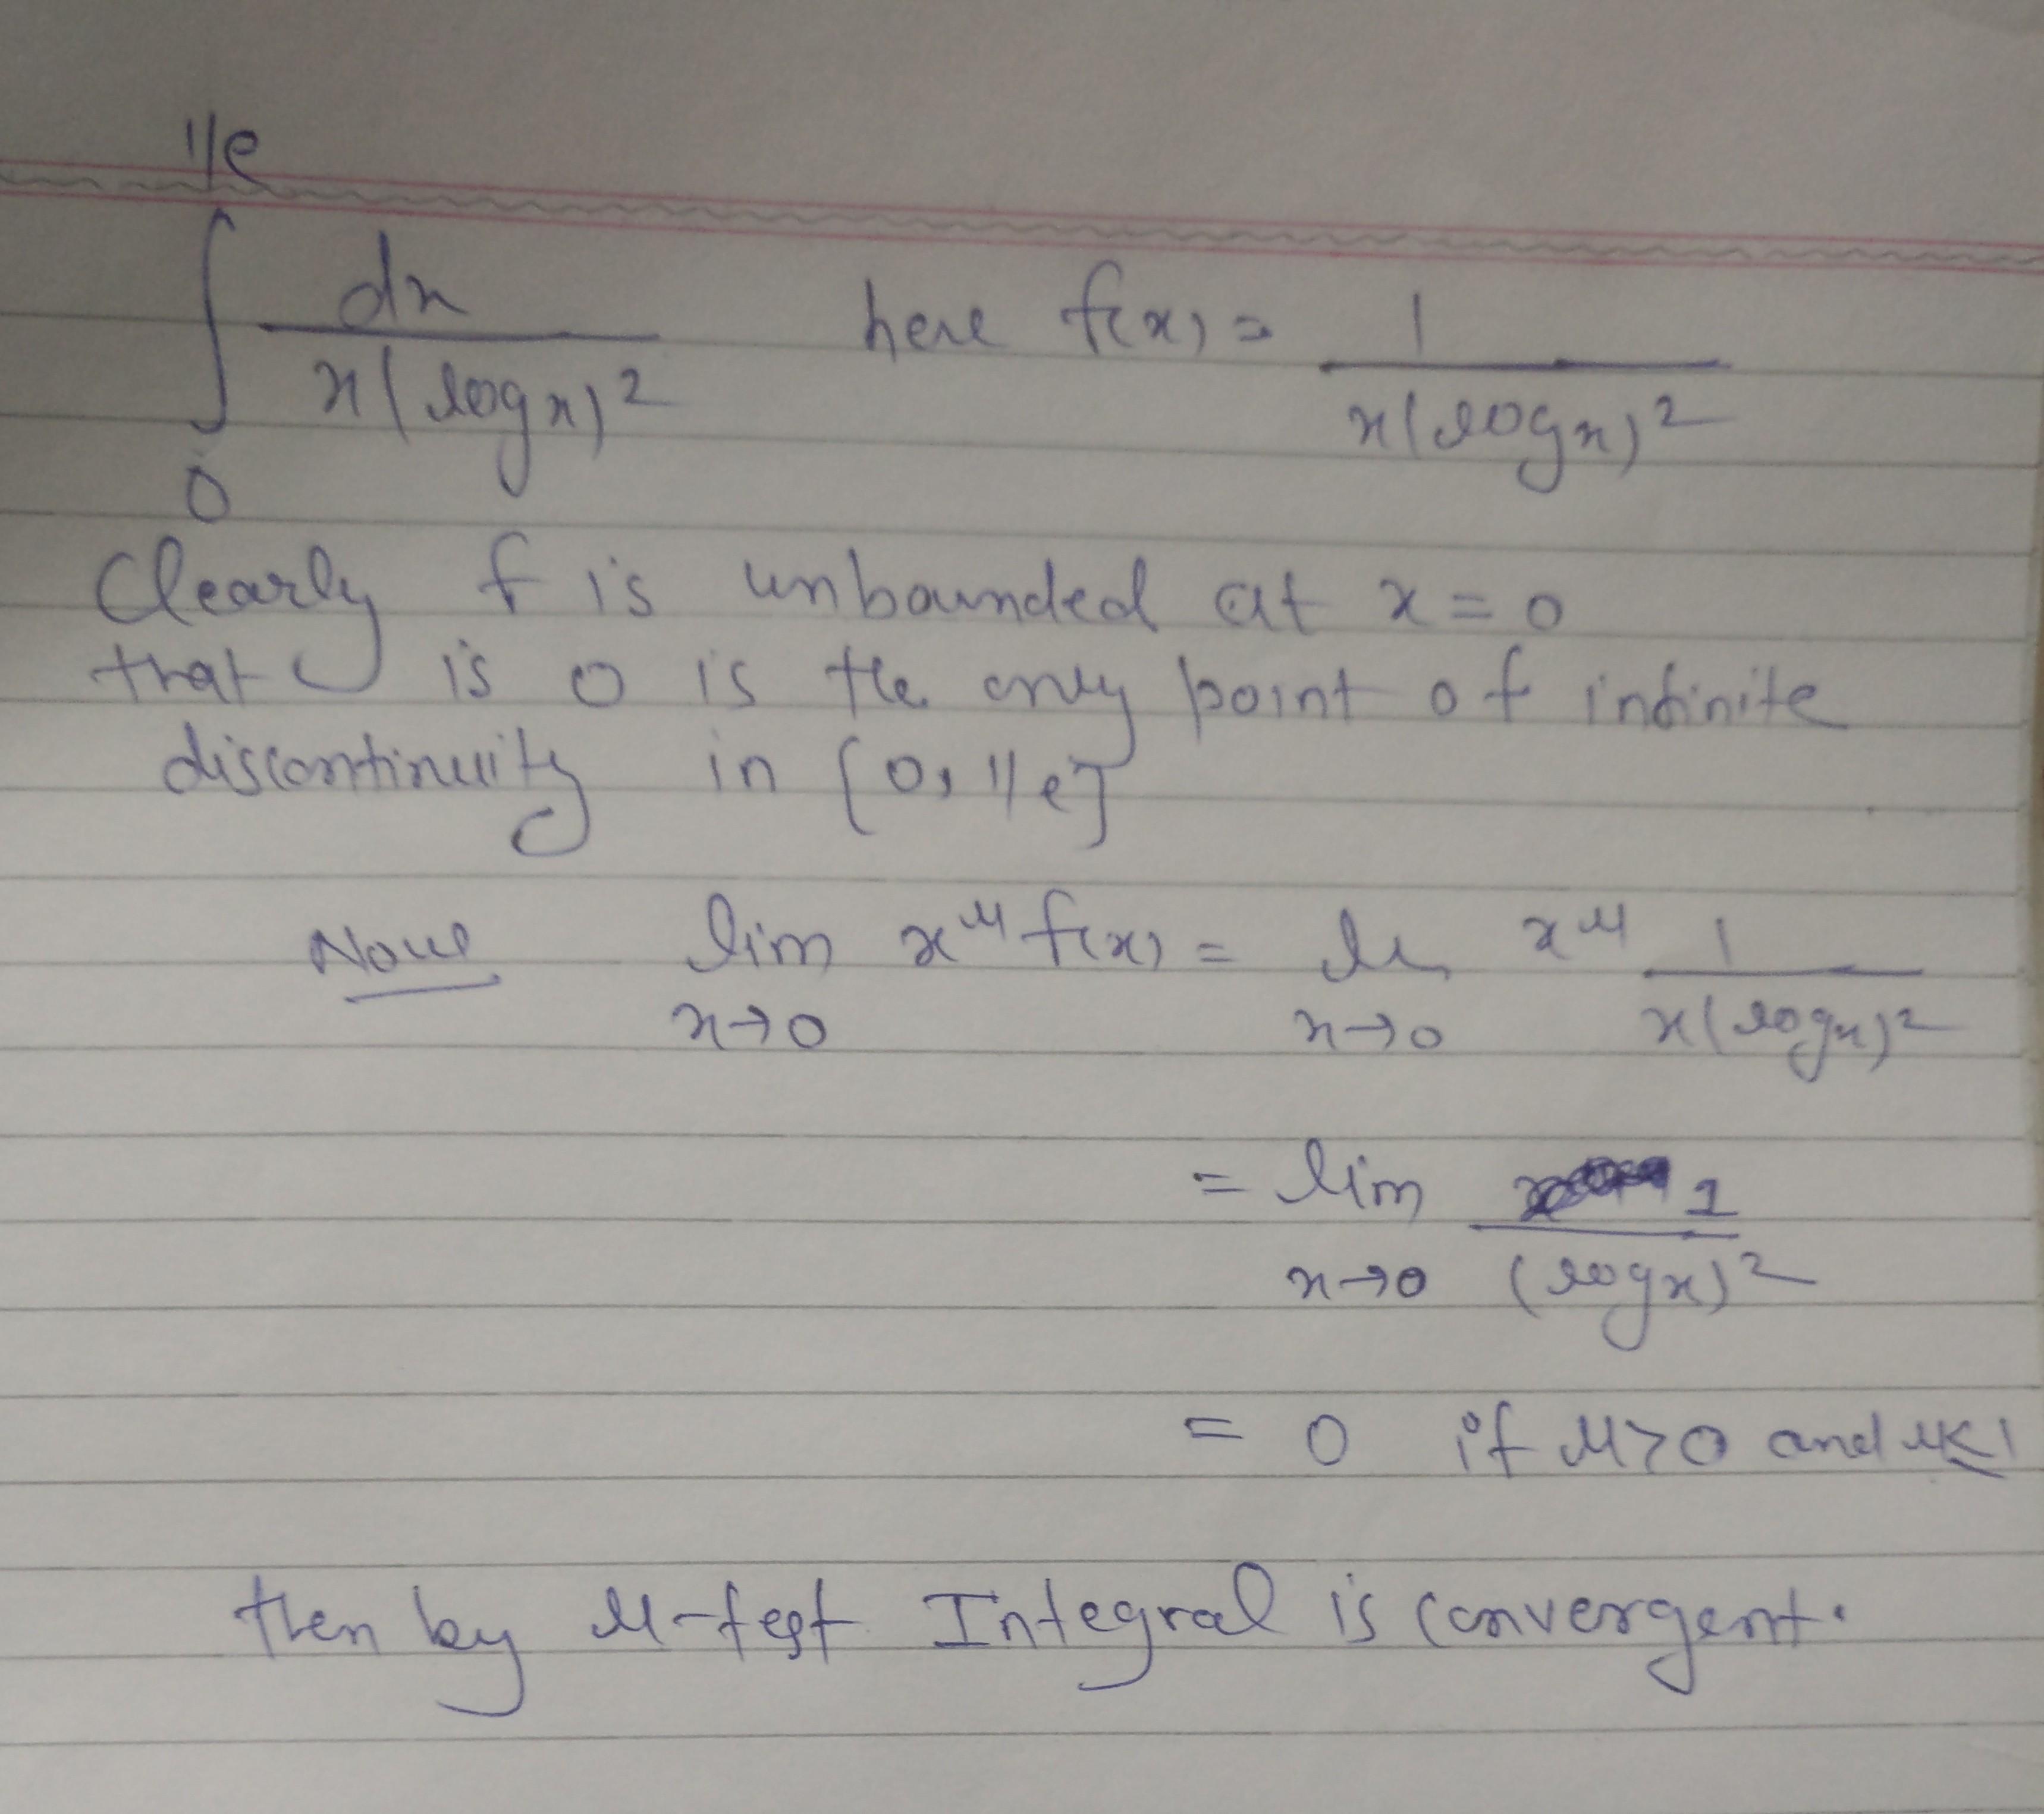 ∫₀^{1/e} dx / x(log x)² here f(x) = 1 / x(log x)²
Clearly f is unbounded at x = 0
that is 0 is the only point of infinite
discontinuity in [0, 1/e]
Now lim x→0 x^μ f(x) = li x→0 x^μ 1 / x(log x)²
= lim x→0 1 / (log x)²
= 0 if μ>0 and μ<1
then by μ-test Integral is convergent.